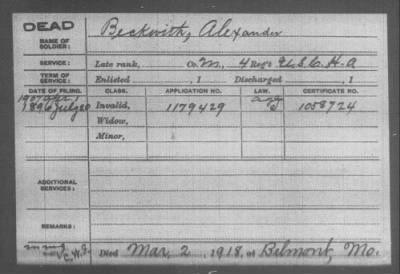 DEAD
NAME OF SOLDIER: Beckwith, Alexander
SERVICE: Late rank, Co. M, 4 Reg't U.S.C.H.A
TERM OF SERVICE: Enlisted , 1 Discharged , 1
DATE OF FILING. CLASS. APPLICATION NO. LAW. CERTIFICATE NO.
1907 Apr 1
1896 July 20 Invalid, 1179429 1058724
Widow,
Minor,
ADDITIONAL SERVICES:
REMARKS:
Died Mar. 2, 1918, at Belmont, Mo.